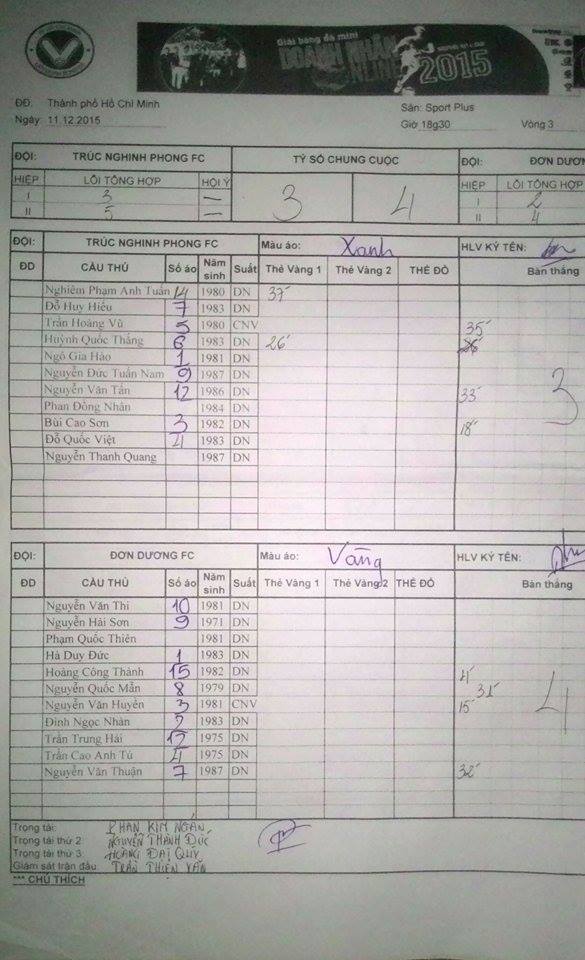 Giải bóng đá mini
DOANH NHÂN
ONLINE 2015
ĐĐ. Thành phố Hồ Chí Minh
Sân: Sport Plus
Ngày 11.12.2015 Giờ 18g30 Vòng 3
ĐỘI: TRÚC NGHINH PHONG FC TỶ SỐ CHUNG CUỘC ĐỘI: ĐƠN DƯƠ
HIỆP LỖI TỔNG HỢP HỘI Ý 3 4 HIỆP LỖI TỔNG HỢP
I 3 — I 2
II 5 — II 4
ĐỘI: TRÚC NGHINH PHONG FC Màu áo: Xanh HLV KÝ TÊN:
ĐD CẦU THỦ Số áo Năm sinh Suất Thẻ Vàng 1 Thẻ Vàng 2 THẺ ĐỎ Bàn thắng
Nghiêm Phạm Anh Tuấn 14 1980 DN 37'
Đỗ Huy Hiếu 7 1983 DN
Trần Hoàng Vũ 5 1980 CNV 35'
Huỳnh Quốc Thắng 6 1983 DN 26'
Ngô Gia Hào 1 1981 DN 3
Nguyễn Đức Tuấn Nam 9 1987 DN
Nguyễn Văn Tấn 12 1986 DN 33'
Phan Đồng Nhân 1984 DN
Bùi Cao Sơn 3 1982 DN 18'
Đỗ Quốc Việt 4 1983 DN
Nguyễn Thanh Quang 1987 DN
ĐỘI: ĐƠN DƯƠNG FC Màu áo: Vàng HLV KÝ TÊN:
ĐD CẦU THỦ Số áo Năm sinh Suất Thẻ Vàng 1 Thẻ Vàng 2 THẺ ĐỎ Bàn thắng
Nguyễn Văn Thi 10 1981 DN
Nguyễn Hải Sơn 9 1971 DN
Phạm Quốc Thiên 1981 DN
Hà Duy Đức 1 1983 DN
Hoàng Công Thành 15 1982 DN 4'
Nguyễn Quốc Mẫn 8 1979 DN 31' 4
Nguyễn Văn Huyền 3 1981 CNV 15'
Đinh Ngọc Nhàn 2 1983 DN
Trần Trung Hải 12 1975 DN
Trần Cao Anh Tú 4 1975 DN
Nguyễn Văn Thuận 7 1987 DN 32'
Trọng tài: PHAN KIM NGÂN
Trọng tài thứ 2: NGUYỄN THÀNH ĐỨC
Trọng tài thứ 3: HOÀNG ĐẠI QUÝ
Giám sát trận đấu: TRẦN THIÊN VĂN
*** CHÚ THÍCH